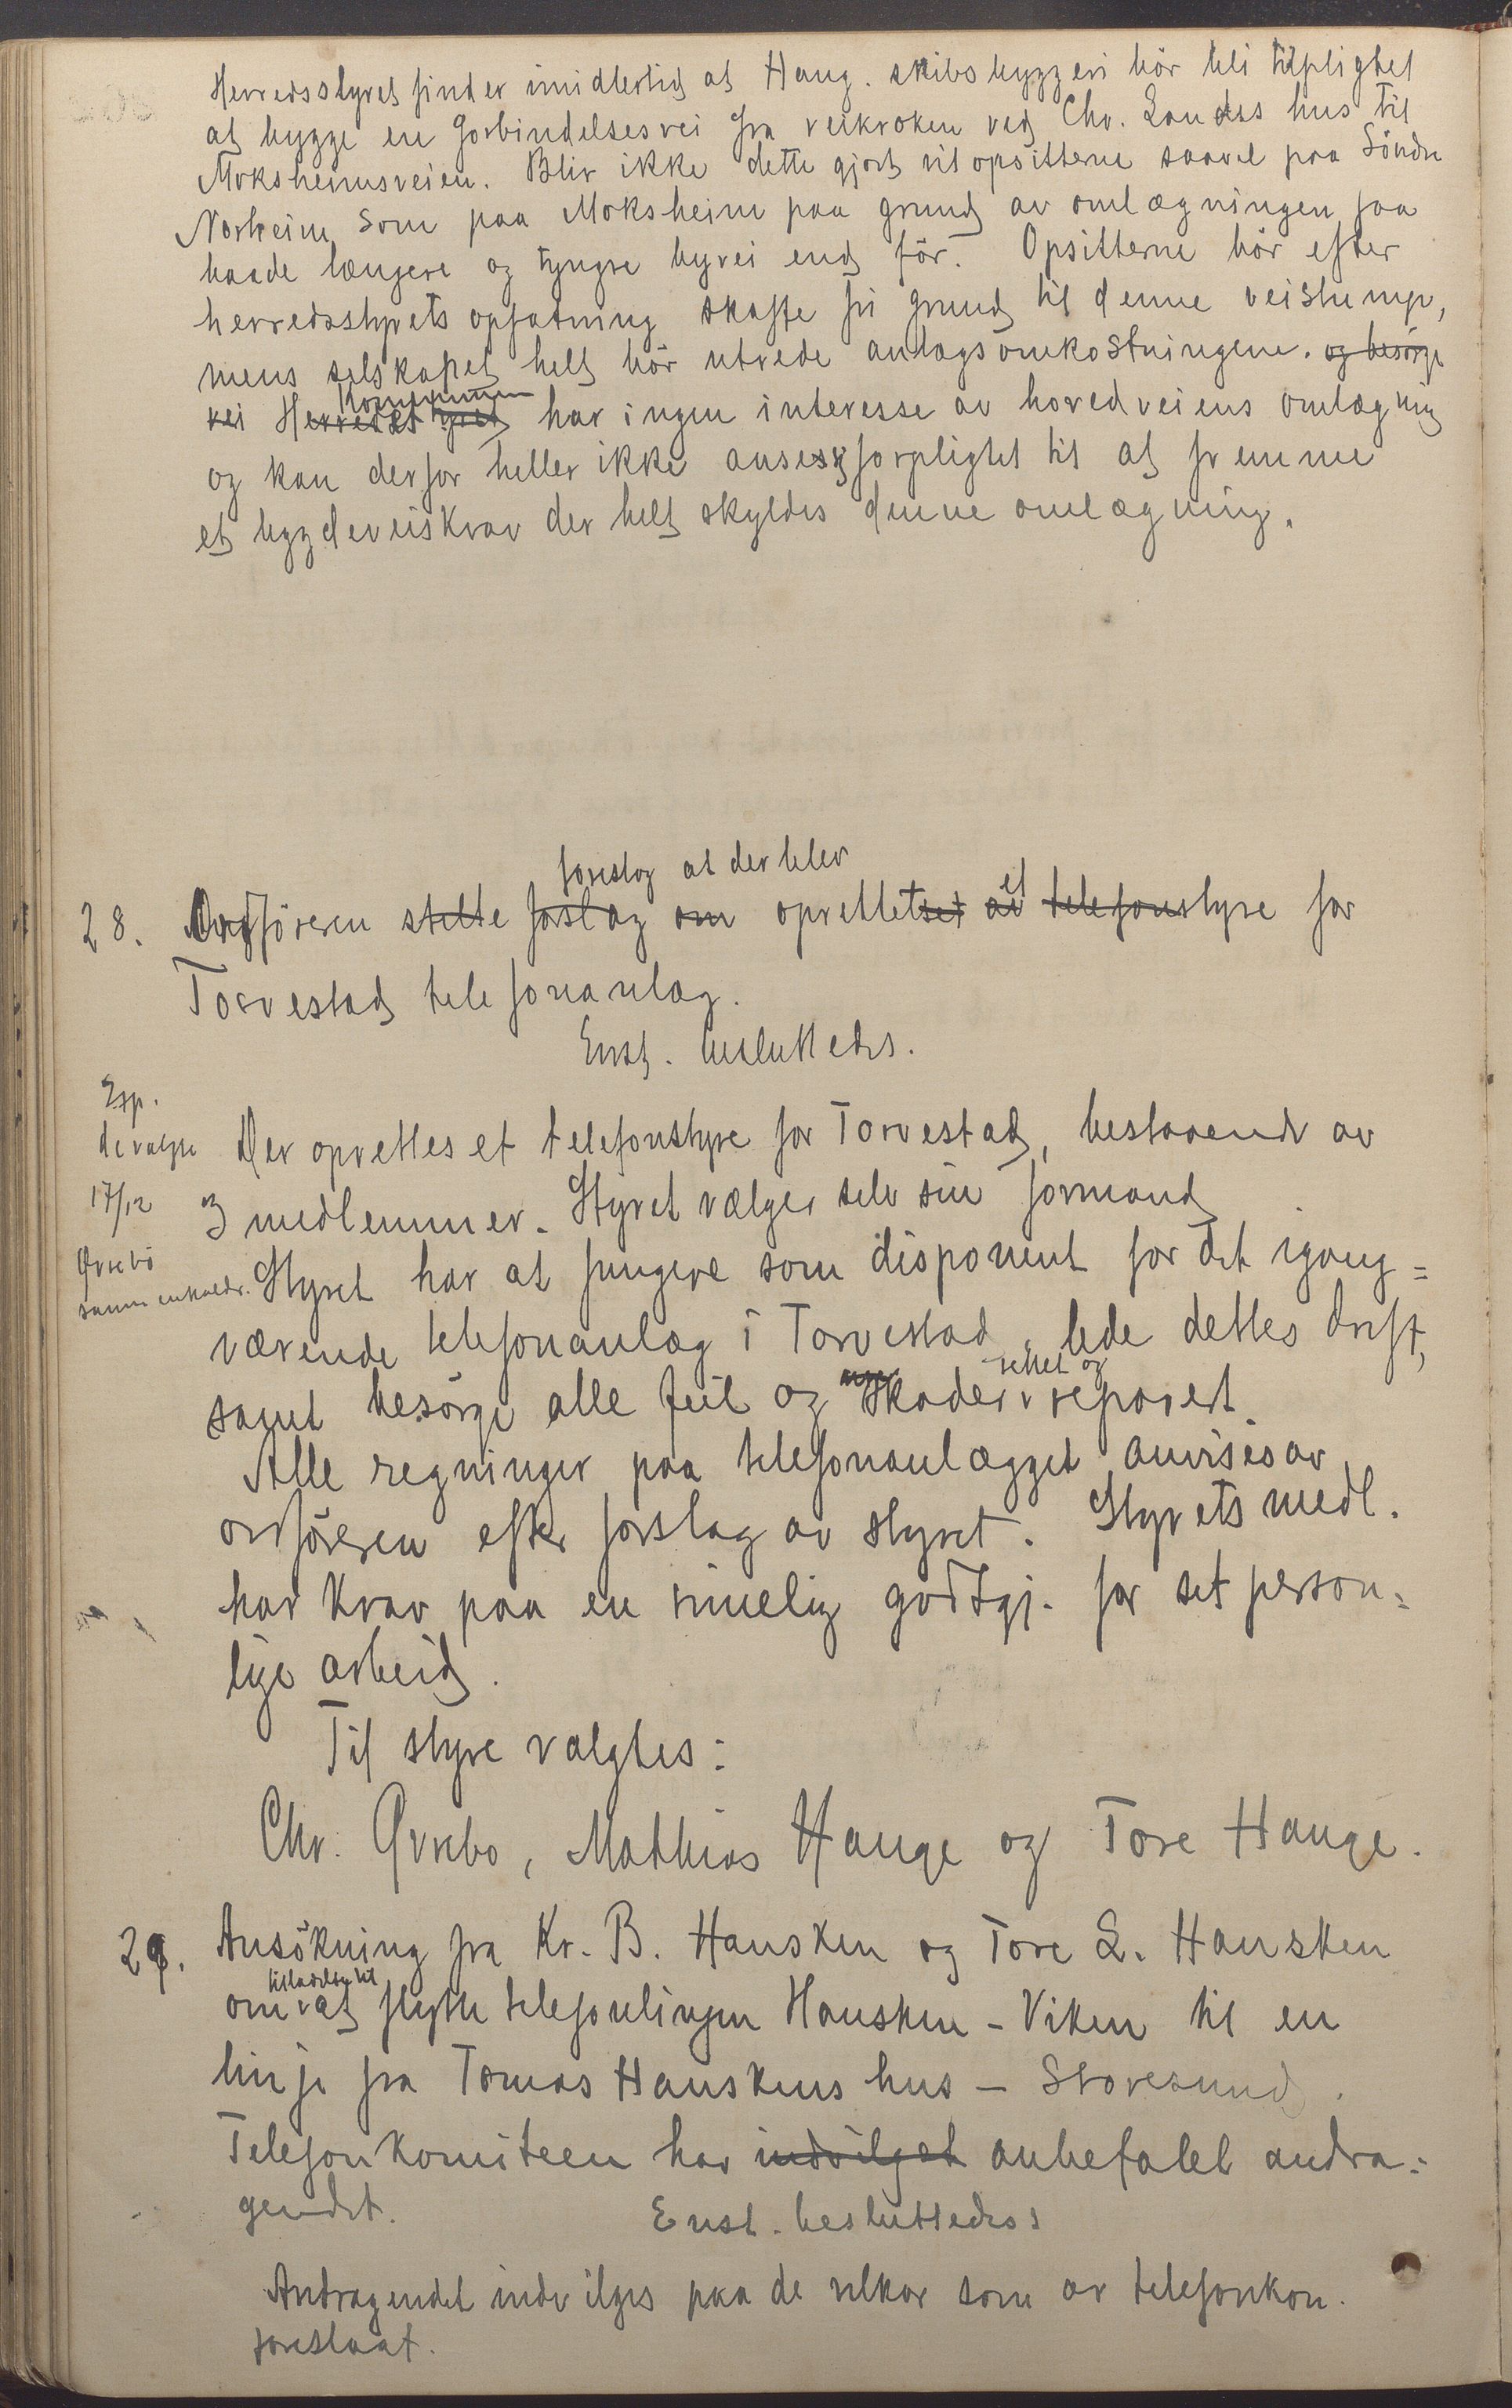 Herredsstyret finder imidlertid at Haug. skibsbyggeri bör bli tilpligtet
at bygge en forbindelsesvei fra veikroken ved Chr. Landaas hus til
Moksheimsveien. Blir ikke dette gjort vil opsitterne saavel paa Söndre
Norheim som paa Moksheim paa grund av omlægningen faa
baade længere og tyngre byvei end för. Opsitterne bör efter
herredsstyrets opfatning skaffe fri grund til denne veistump,
mens selskapet helt bör utrede anlægsomkostningene. og besörge
vei Herredsstyret Kommunen har ingen interesse av hovedveiens omlægnig
og kan derfor heller ikke anses forpligtet til at fremme
et bygdeveiskrav der helt skyldes denne omlægning.
foreslog at der blev
28. Ordföreren stilte forslag om oprettet et telefonstyre for
Torvestad telefonanlæg.
Enst. besluttedes.
Exp.
de valgte
17/12
Øvrebö
sammenkalder.
Der oprettes et telefonstyre for Torvestad, bestaaende av
3 medlemmer. Styret vælger selv sin formand
Styret har at fungere som disponent for det igang=
værende telefonanlæg i Torvestad, lede dettes drift,
rettet og
samt besörge alle feil og skader reparert.
Alle regninger paa telefonanlægget anvises av
ordföreren efter forslag av styret. Styrets medl.
har krav paa en rimelig godtgj. for det person=
lige arbeid.
Til styre valgtes:
Chr. Øvrebo, Mathias Hauge og Tore Hauge.
29. Ansökning fra Kr. B. Hausken og Tore L. Hausken
tilladelse til
om at flytte telefonlinjen Hausken - Viken til en
linje fra Tomas Hauskens hus - Storesund.
Telefonkomiteen har indvilget anbefalet andra=
gendet.
Enst. besluttedes:
Andragendet indvilges paa de vilkor som av telefonkon.
foreslaat.